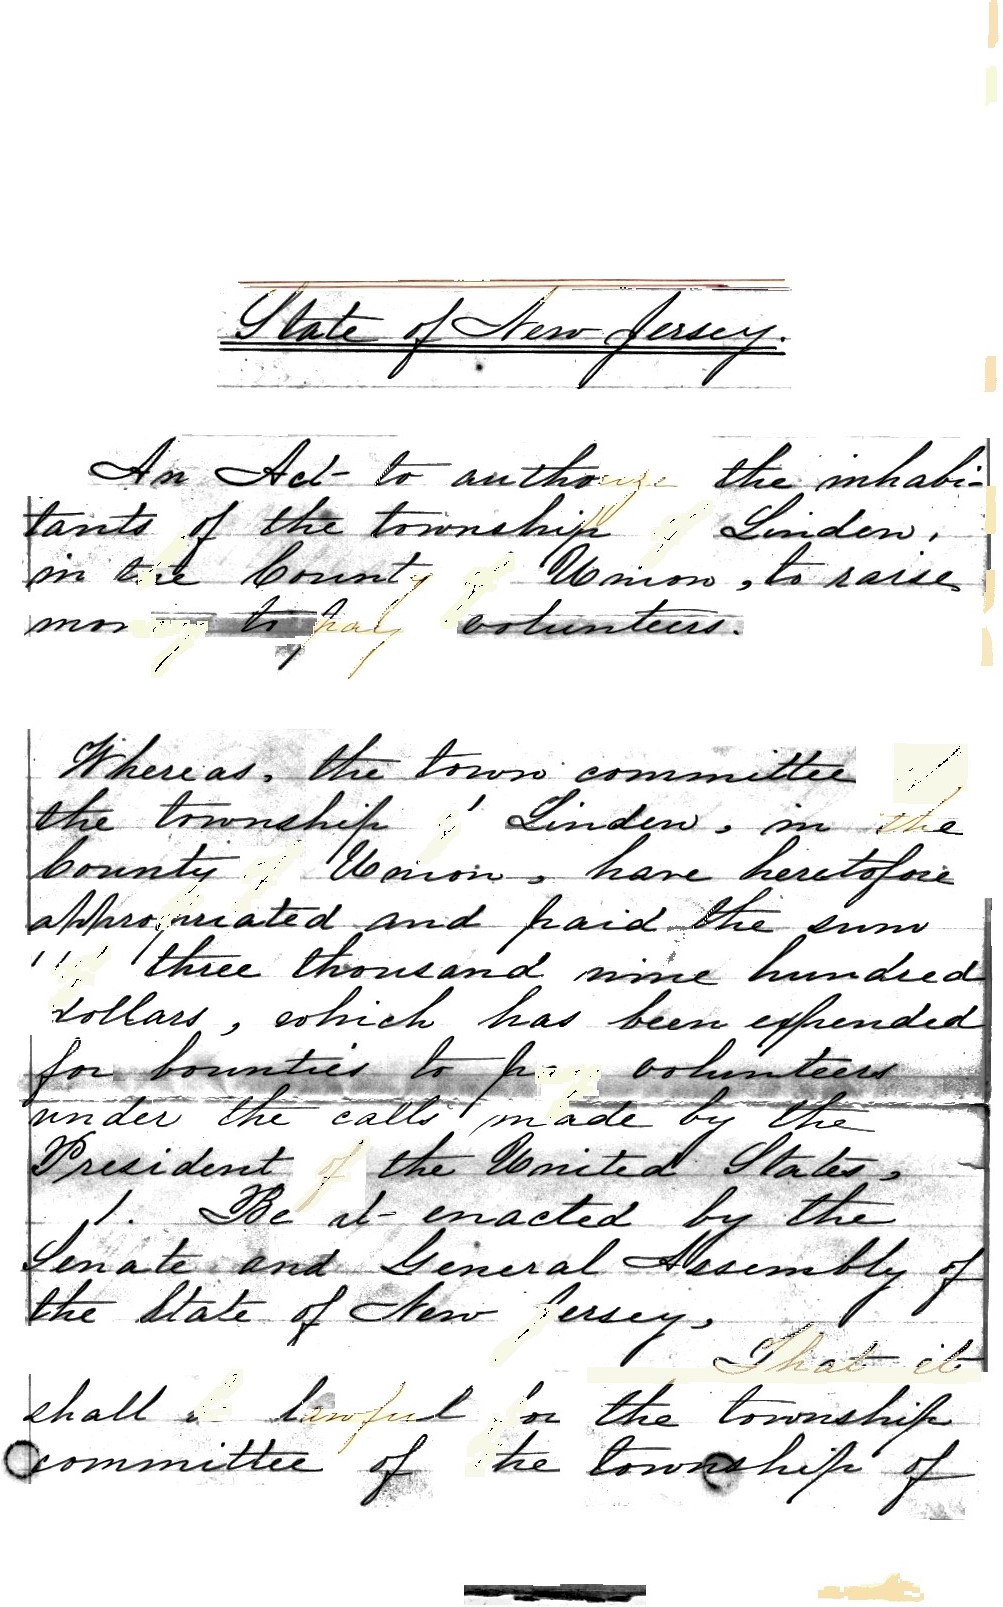 State of New Jersey.
An Act to authorize the inhabi-
tants of the township of Linden,
in the County of Union, to raise
money to pay volunteers.
Whereas, the town committee of
the township of Linden, in the
County of Union, have heretofore
appropriated and paid the sum
of three thousand nine hundred
dollars, which has been expended
for bounties to pay volunteers
under the calls made by the
President of the United States,
1. Be it enacted by the
Senate and General Assembly of
the State of New Jersey,
That it
shall be lawful for the township
committee of the township of